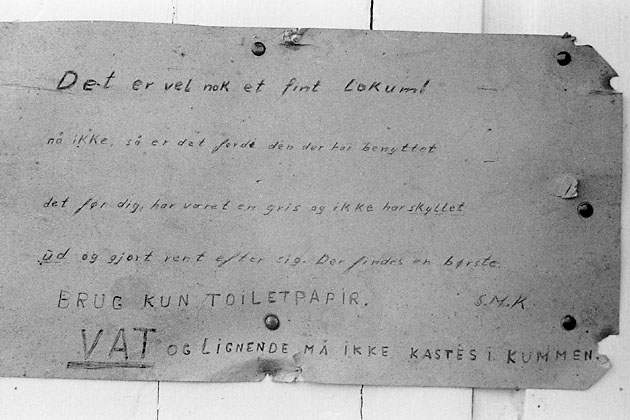 Det er vel nok et fint Lokum!
nå ikke, så er det fordi den der har benyttet
det før dig, har været en gris og ikke har skyllet
ud og gjort rent efter sig. Der findes en børste.
BRUG KUN TOILETPAPIR. S.M.K.
VAT OG LIGNENDE MÅ IKKE KASTES I KUMMEN.